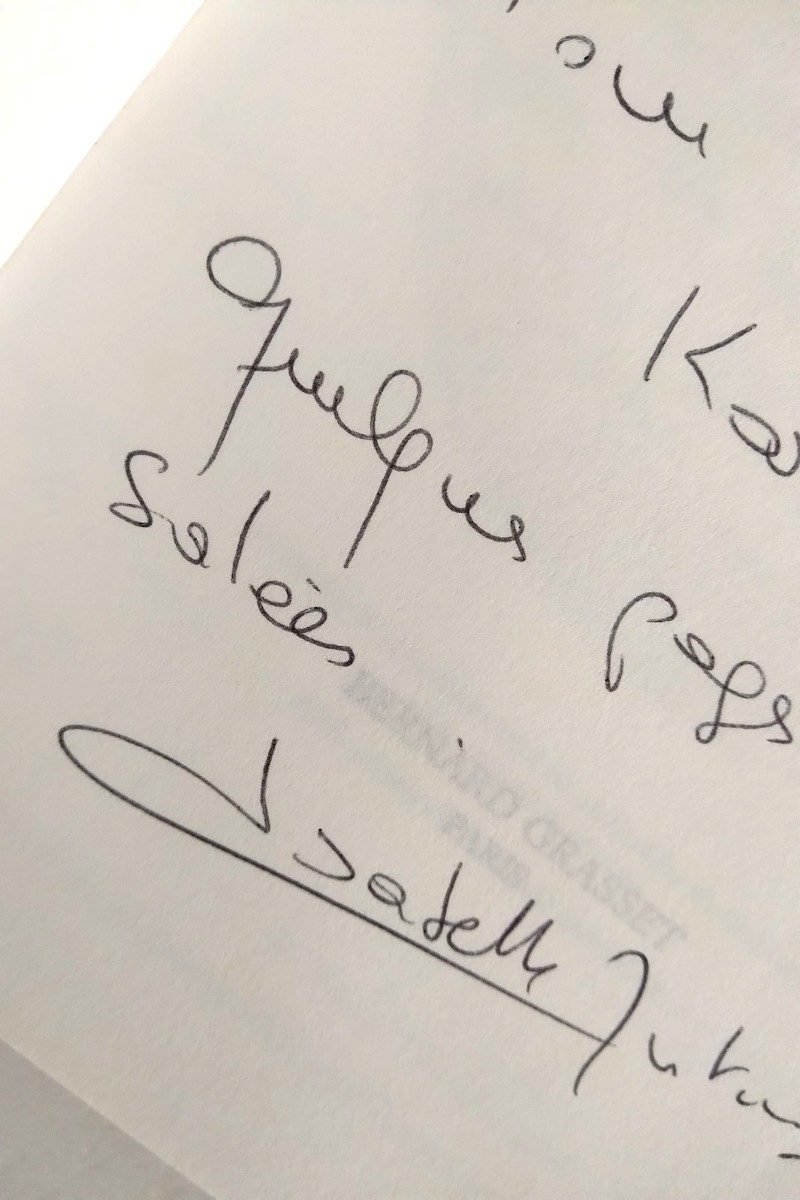 Ka
Quelques pages
Salées
Isabelle
BERNARD GRASSET
PARIS